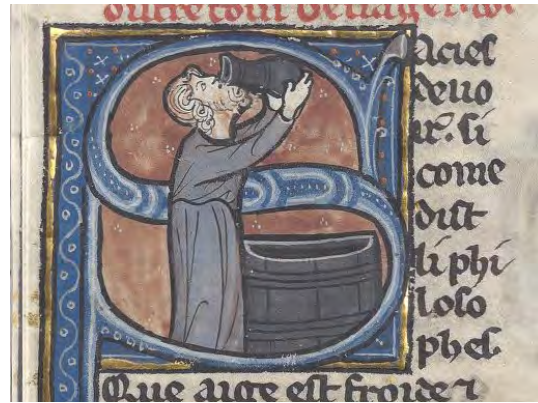 Sacies
deuo
ir. si
come
dist
li phi
loso
phes.
Que aige est froide ⁊